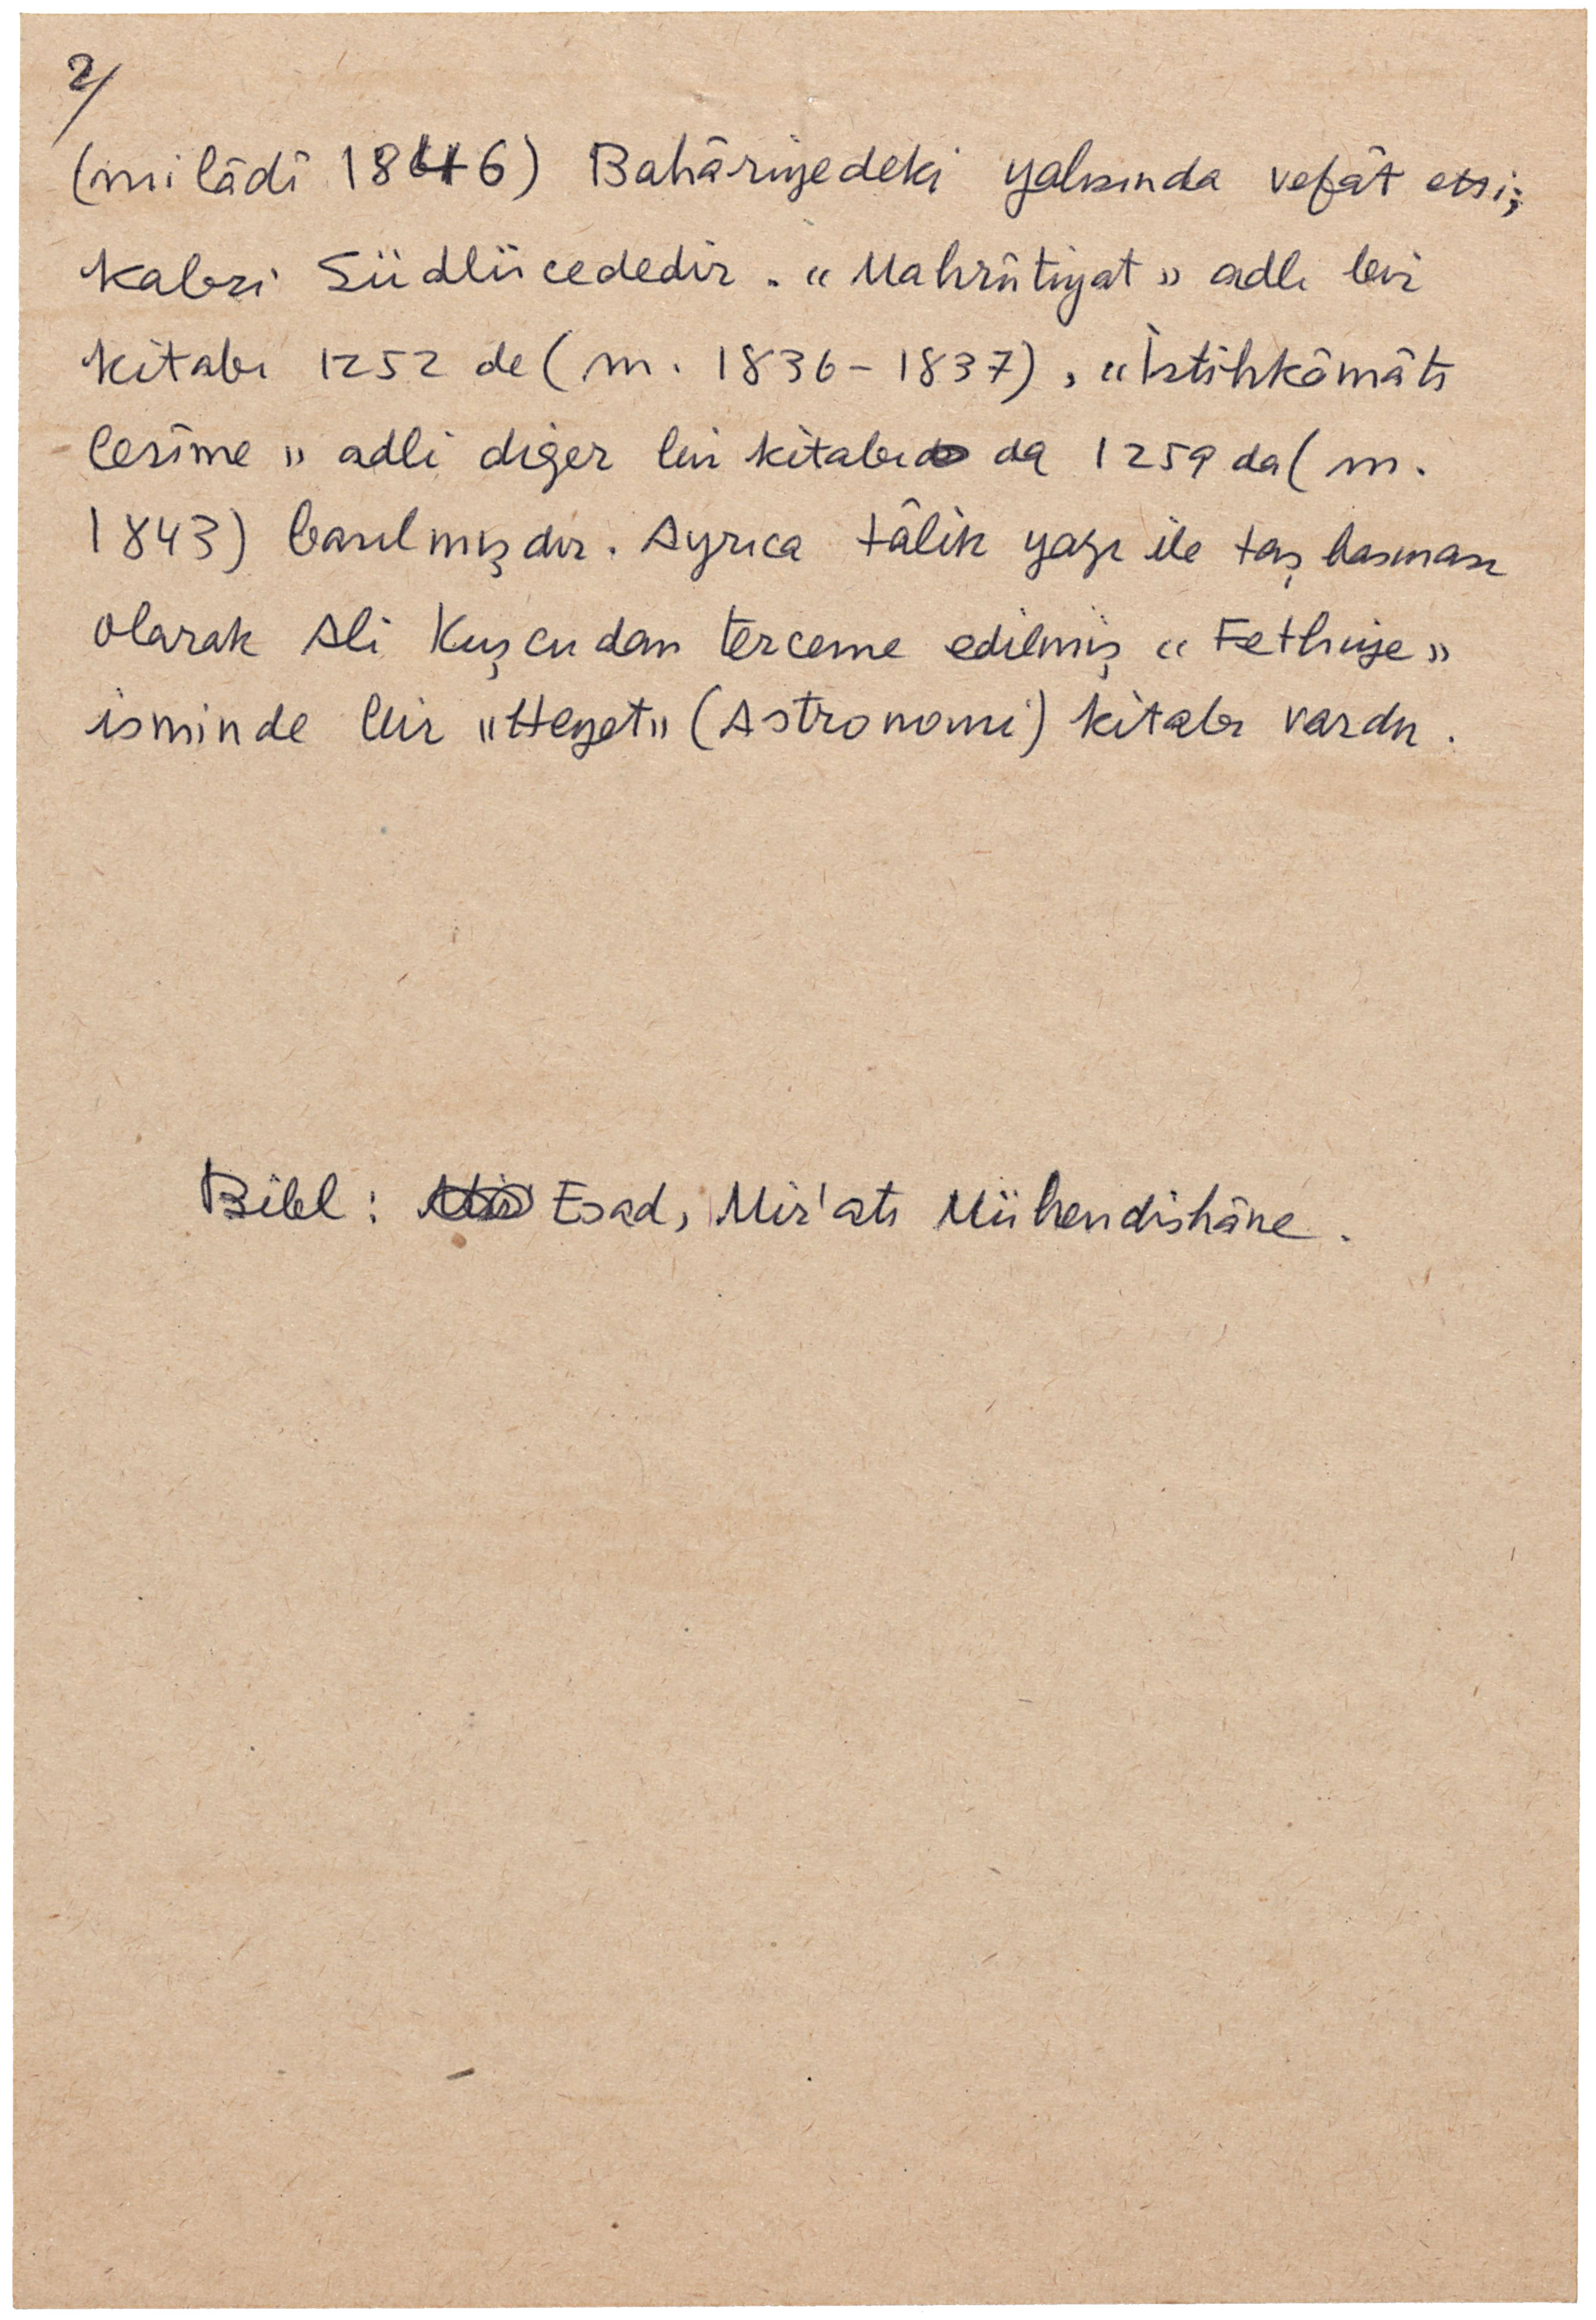 2/
(milâdî 1846) Bahâriyedeki yalısında vefât etti;
kabri Südlücededir. "Mahrûtiyat" adlı bir
kitabı 1252 de (m. 1836-1837), "İstihkâmâtı
cesîme" adli diğer bir kitabı da 1259 da (m.
1843) basılmışdır. Ayrıca tâlik yazı ile taş basması
olarak Ali Kuşcudan terceme edilmiş "Fethiye"
isminde bir "Heyet" (Astronomi) kitabı vardır.
Bibl: Esad, Mir'atı Mühendishâne.